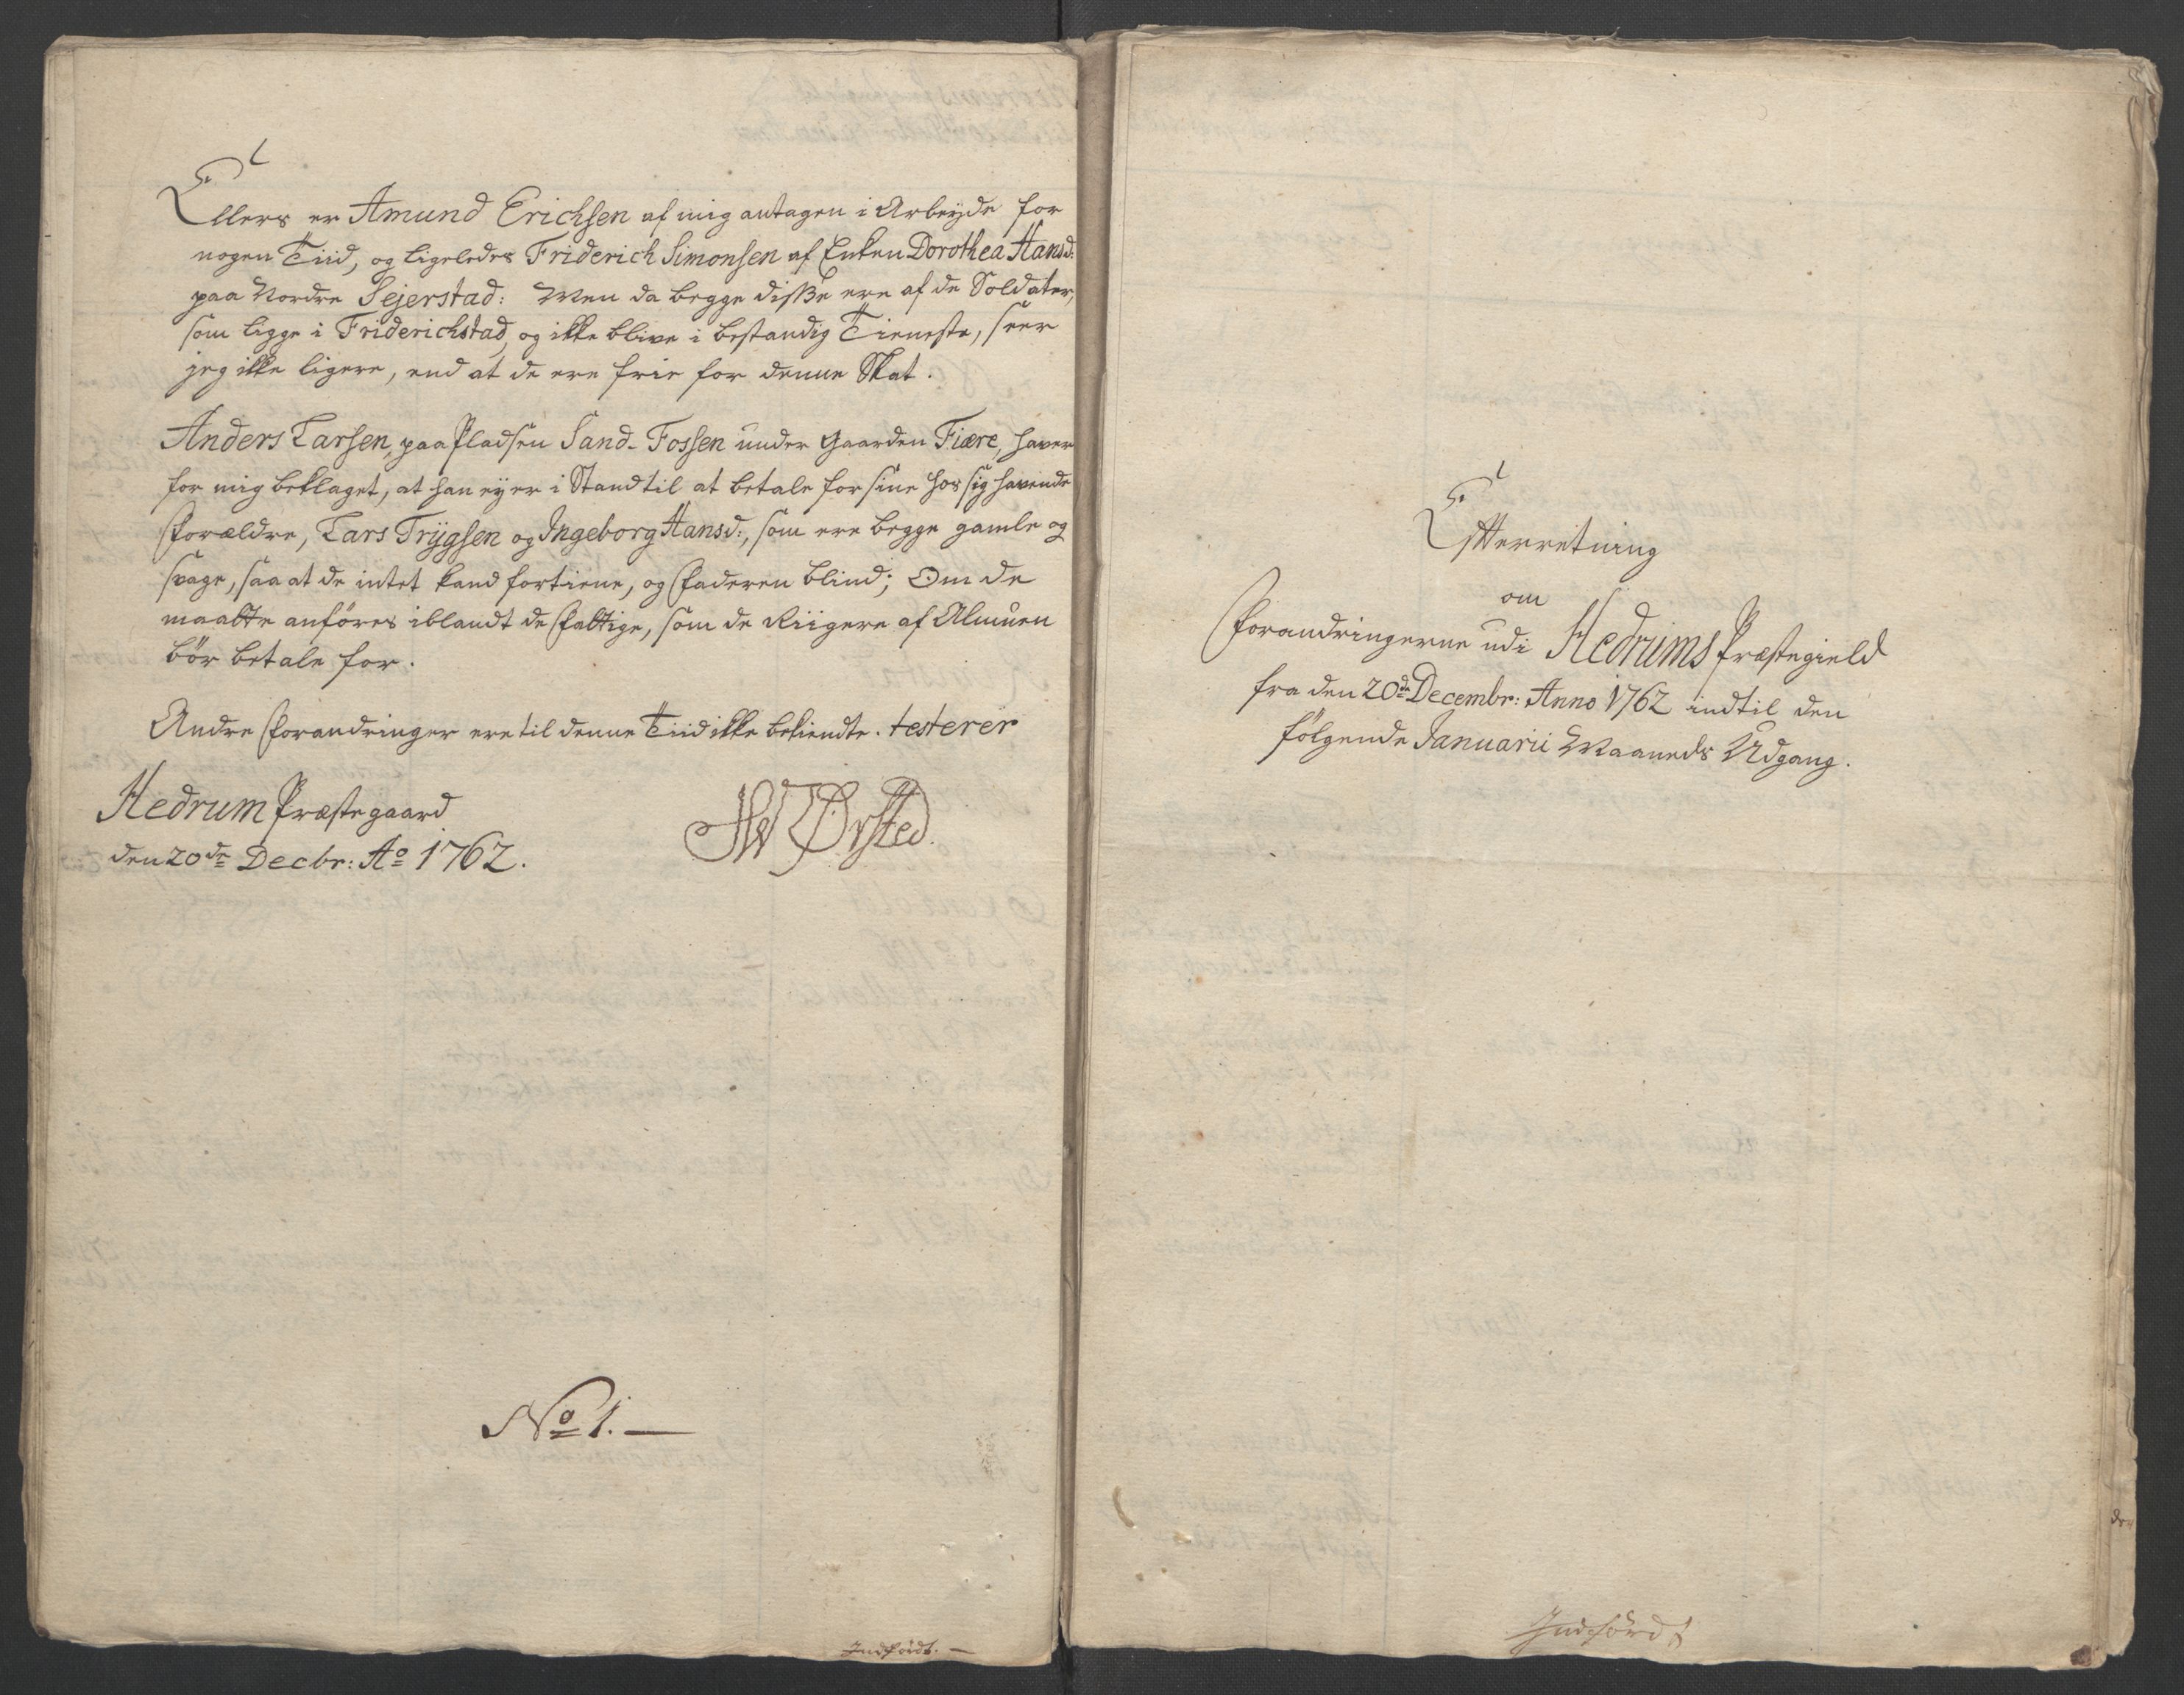 Ellers er Amund Erichsen af mig antagen i Arbeyde for
nogen Tiid, og ligeledes Friderich Simonsen af Enken Dorothea Hansd:
paa Nordre Sejerstad: Men da begge disse ere af de Soldater,
som ligge i Friderichstad, og ikke blive i bestandig Tieneste, seer
jeg ikke ligere, end at de ere frie for denne Skat.
Anders Larsen, paa Pladsen Sand-Fossen under Gaarden Fiære, haver
for mig beklaget, at han ey er i Stand til at betale for sine hos sig havende
Forældre, Lars Trygsen og Ingeborg Hansd:, som ere begge gamle og
svage, saa at de intet kand fortiene, og Faderen blind; Om de
maatte anföres iblandt de Fattige, som de Riigere af Almuen
bör betale for.
Andre Forandringer ere til denne Tiid ikke bekiendte. testerer
Hedrum Præstegaard
den 20de Decbr: Ao 1762.
HW Ørsted.
No 1.
Indfördt.
Efterretning
om
Forandringerne udi Hedrums Præstegield
fra den 20de Decembr: Anno 1762 indtil den
fölgende Januarii Maaneds Udgang.
Indfördt